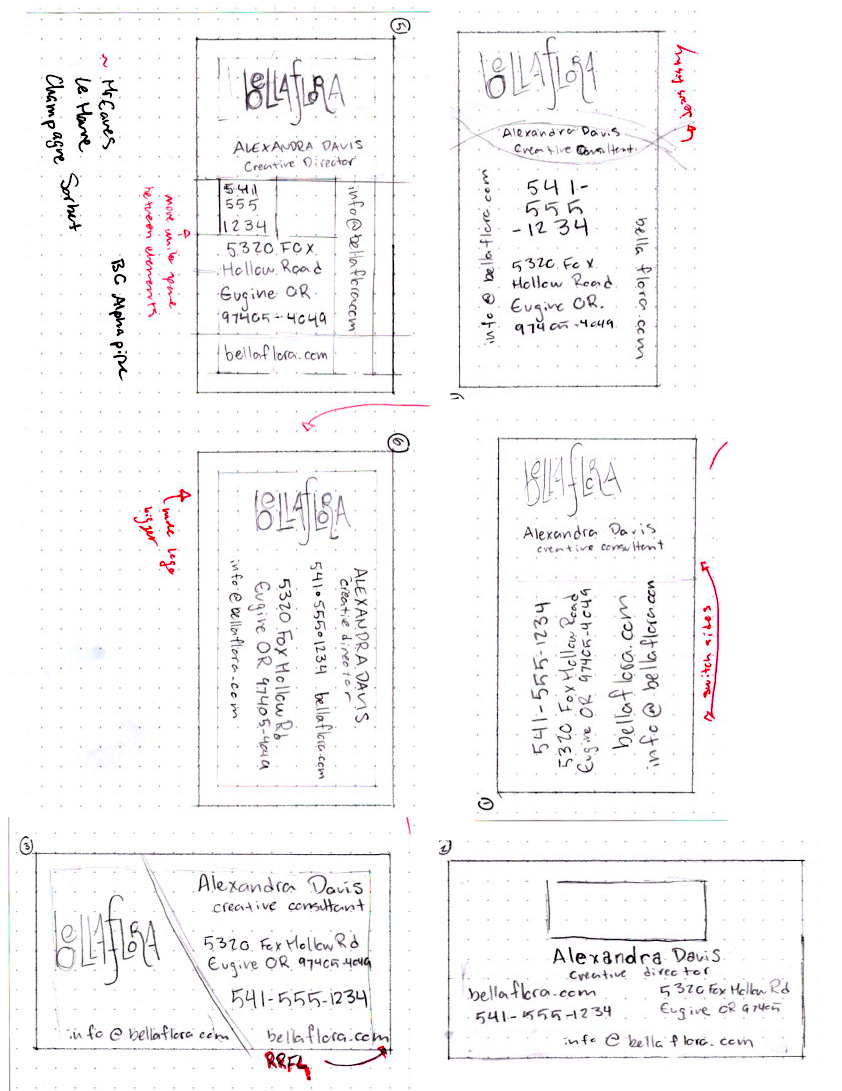 5
bellaflora
ALEXANDRA DAVIS
Creative Director
541
555
1234
5320 Fox
Hollow Road
Eugine OR.
97405-4049
info@bellaflora.com
bellaflora.com
~ Mr Eaves
Le Mane
Champagne Sorbet
BC Alphapipe
more white space
between elements
bellaflora
Alexandra Davis
Creative Consultant.
541-
555
-1234
5320 Fox
Hollow Road
Eugine OR.
97405-4049
info @ bellaflora.com
bella flora.com
6
bellaflora
ALEXANDRA DAVIS
creative director
541•555•1234 bellaflora.com
5320 Fox Hollow Rd
Eugine OR 97405-4049
info@bellaflora.com
make logo
bigger
1
bellaflora
Alexandra Davis
creative consultant
541-555-1234
5320 Fox Hollow Road
Eugine OR 97405-4049
bellaflora.com
info @ bellaflora.com
switch sides
3
bellaflora
Alexandra Davis
creative consultant
5320 Fox Hollow Rd
Eugine OR 97405-4049
541-555-1234
info @ bellaflora.com
bellaflora.com
2
Alexandra Davis
creative director
bellaflora.com
541-555-1234
5320 Fox Hollow Rd
Eugine OR 97405
info @ bella flora.com